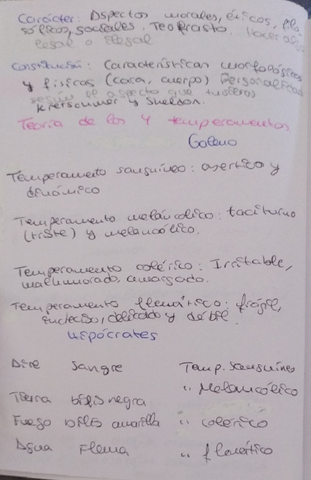 Carácter: Aspectos morales, éticos, filo
sóficos, sociales. Teofrasto. Hacer algo
legal o ilegal
Constitución: Características morfológicas
y físicas (cara, cuerpo) Personalidad
según el aspecto que tuvieras
Kretschmer y Sheldon.
Teoría de los 4 temperamentos
Galeno
Temperamento sanguíneo: asertivo y
dinámico
Temperamento melancólico: taciturno
(triste) y melancólico.
Temperamento colérico: Irritable,
malhumorado, amargado.
Temperamento flemático: frágil,
indeciso, delicado y débil.
Hipócrates
Aire Sangre Temp. Sanguíneo
Tierra bilis negra " Melancólico
Fuego bilis amarilla " colérico
Agua Flema " flemático